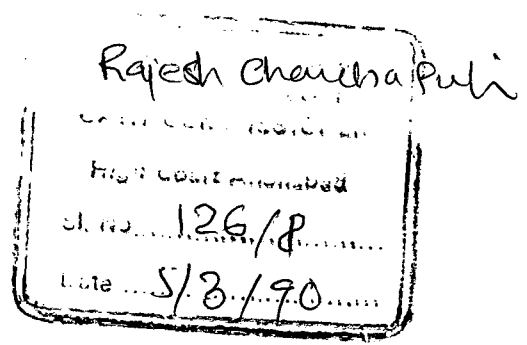 Rajesh Chandra Puli
High Court Allahabad
Sl. No. 126/8
Date 5/3/90